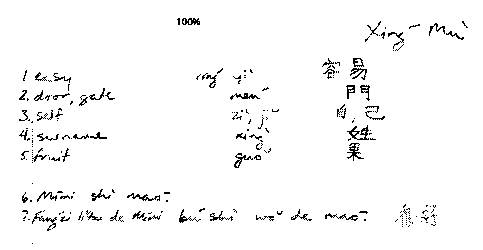 100%
Xīng Mù
1. easy róng yì 容易
2. door, gate mén 門
3. self zì, jǐ 自, 己
4. surname xìng 姓
5. fruit guǒ 果
6. Mīmī shì māo.
7. Fángzi lǐtou de Mīmī bú shì wǒ de māo. 很好